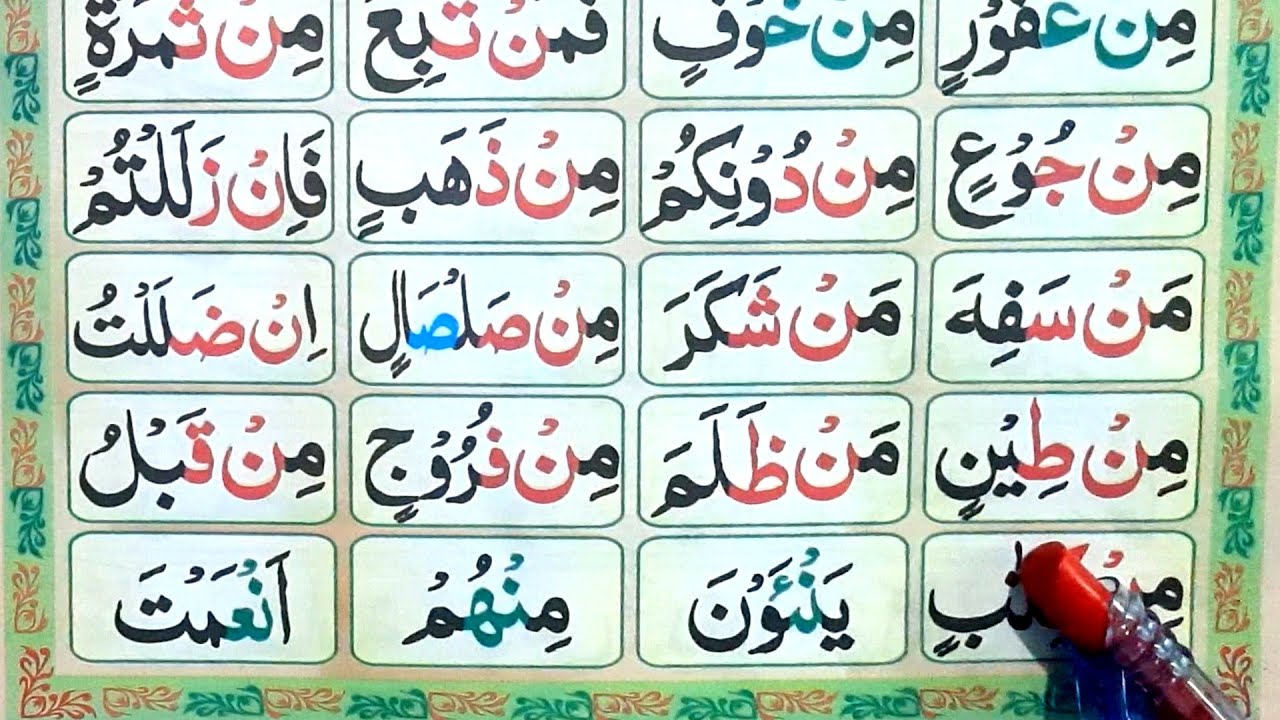 مِنْ غَفُوْرٍ مِنْ خَوْفٍ فَمَنْ تَبِعَ مِنْ ثَمَرَةٍ
مِنْ جُوْعٍ مِنْ دُوْنِكُمْ مِنْ ذَهَبٍ فَاِنْ زَلَلْتُمْ
مَنْ سَفِهَ مَنْ شَكَرَ مِنْ صَلْصَالٍ اِنْ ضَلَلْتُ
مِنْ طِيْنٍ مَنْ ظَلَمَ مِنْ فُرُوْجٍ مِنْ قَبْلُ
يَنْـَٔوْنَ مِنْهُمْ اَنْعَمْتَ